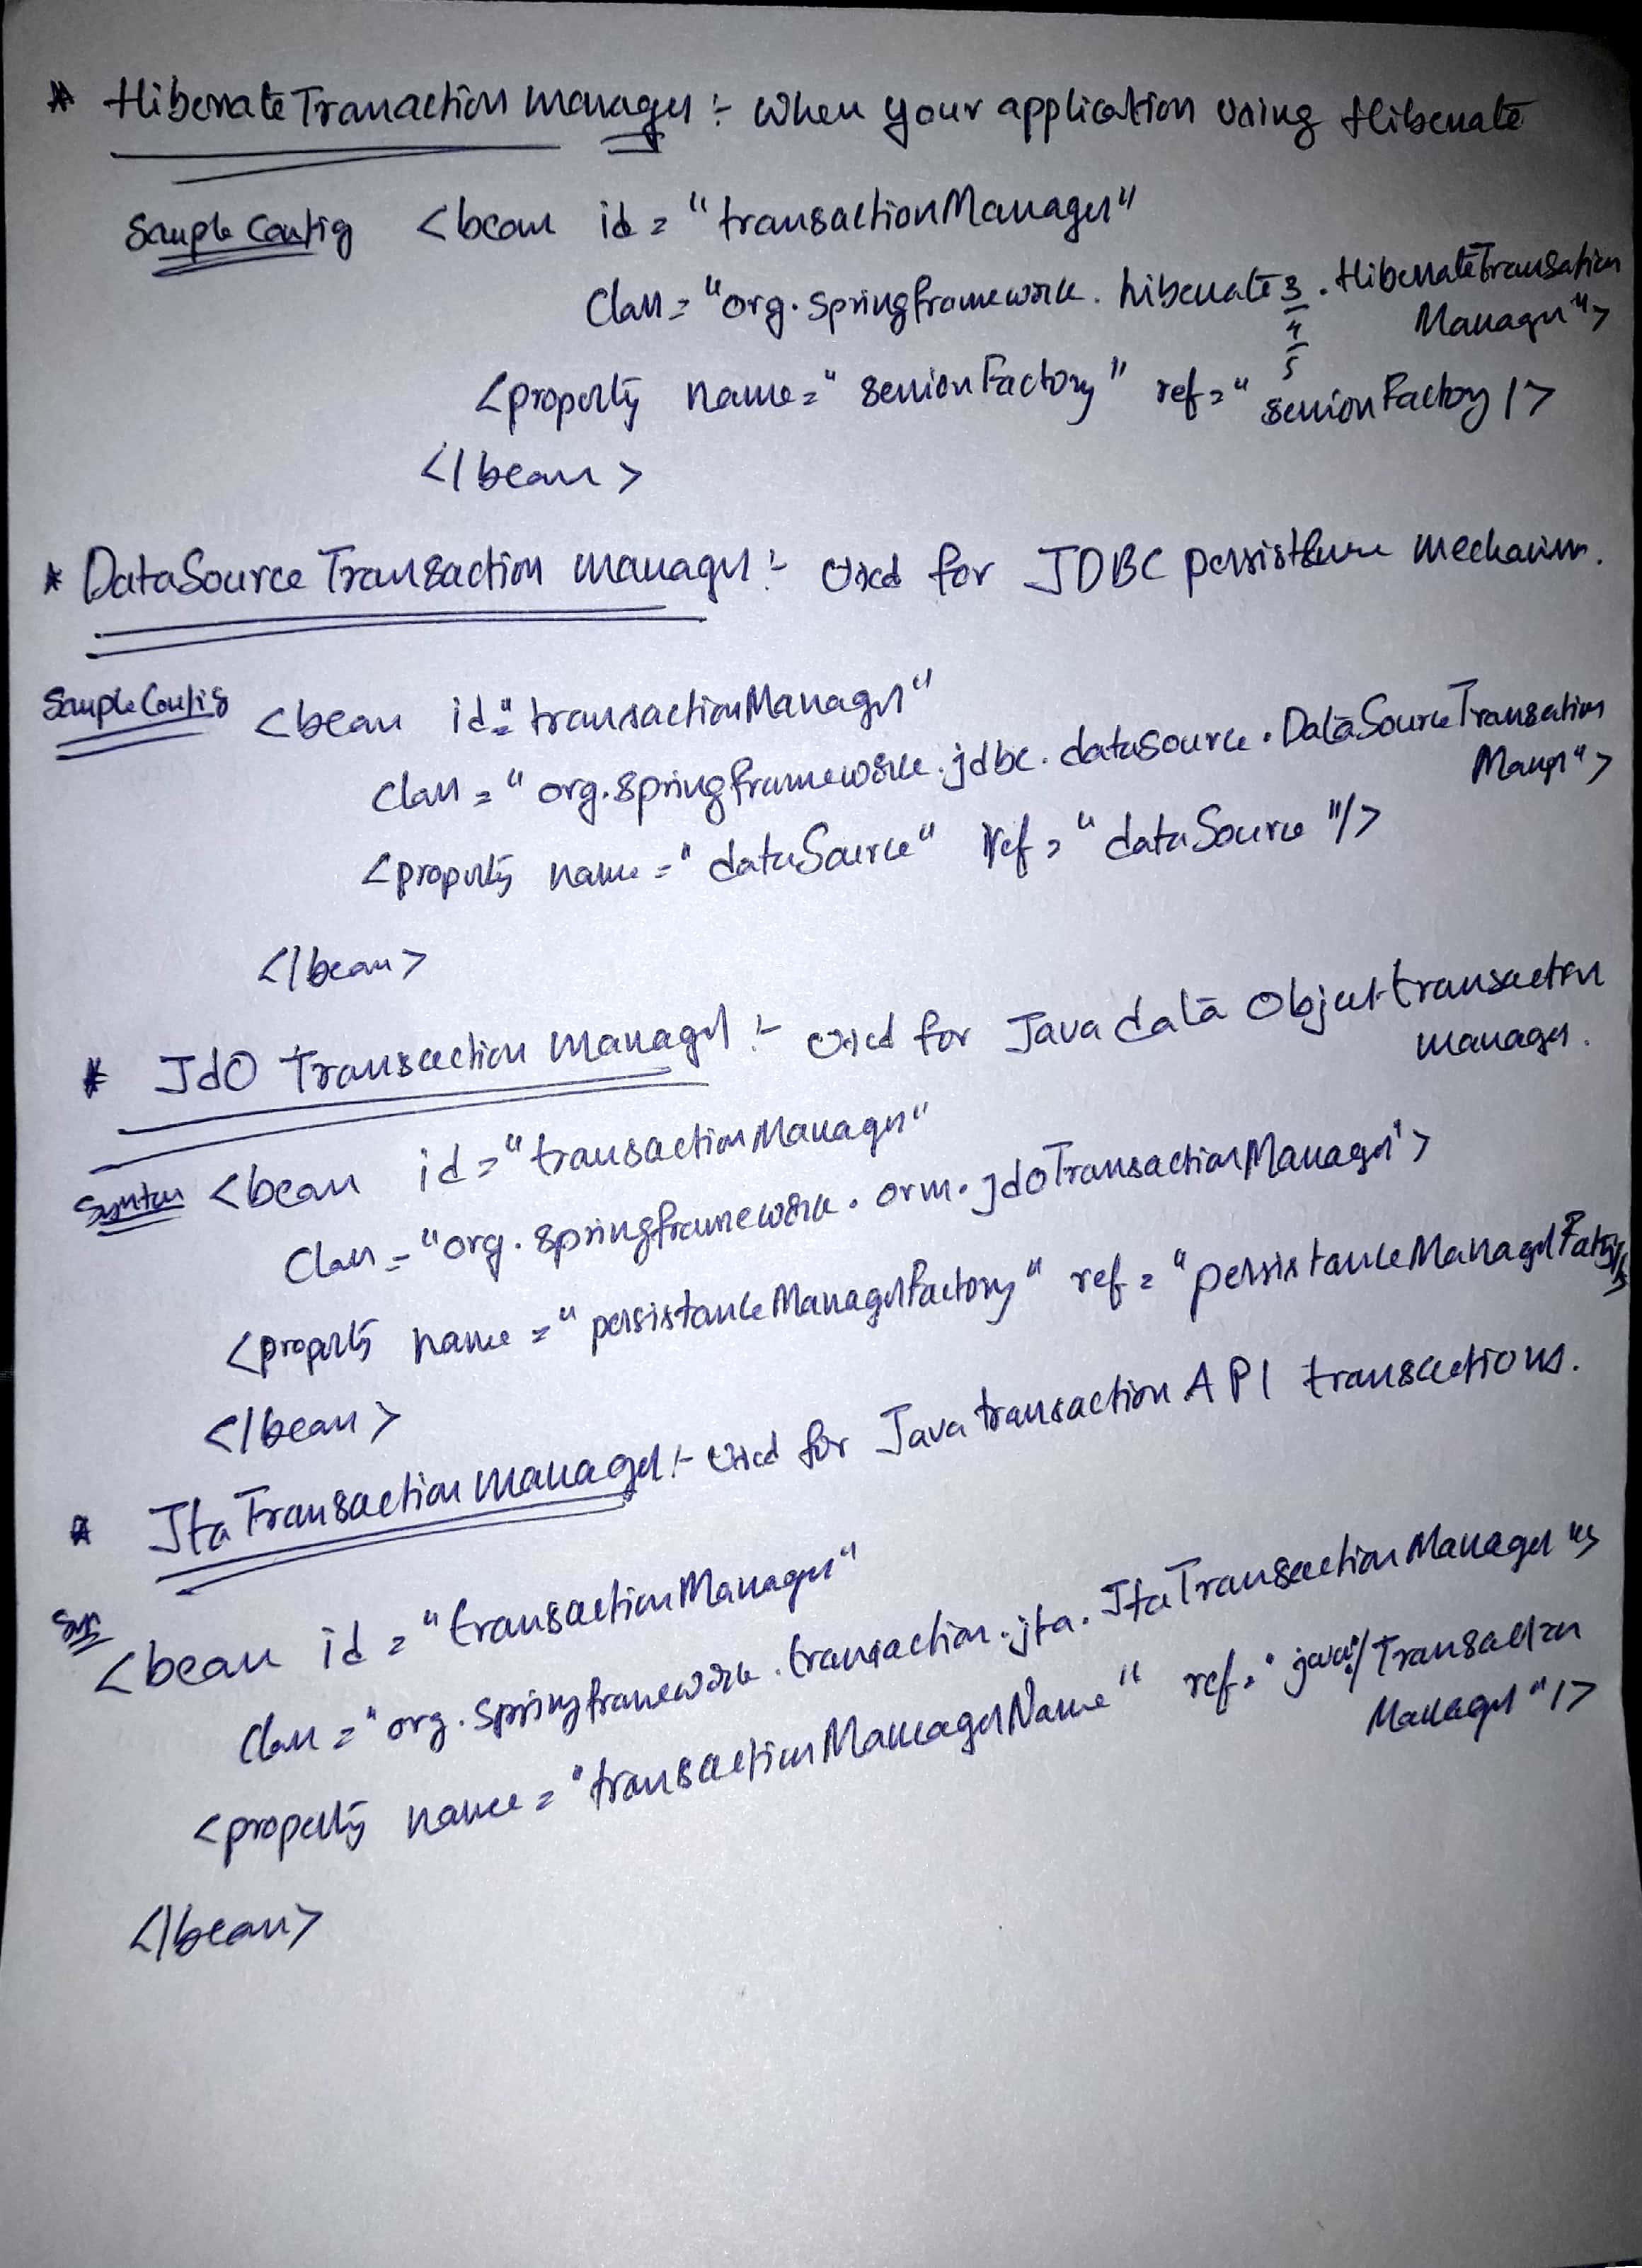 * HibernateTranaction manager :- When your application using Hibernate
Sample Config <bean id = "transactionManager"
Class = "org.springframework.hibernate3.HibernateTransaction
4 Manager">
5
<property name = "sessionFactory" ref = "sessionFactory />
</bean>
* DataSource Transaction manager :- Used for JDBC persistence mechanism.
Sample Config <bean id = "transactionManager"
Class = "org.springframework.jdbc.datasource.DataSourceTransaction
Manager">
<property name = "dataSource" ref = "dataSource"/>
</bean>
* JdO Transaction manager :- Used for Java data Object transaction
manager.
Syntax <bean id = "transactionManager"
Class = "org.springframework.orm.jdoTransactionManager">
<property name = "persistanceManagerFactory" ref = "persistanceManagerFatory"/>
</bean>
* Jta Transaction manager :- Used for Java transaction API transactions.
Syn <bean id = "transactionManager"
Class = "org.springframework.transaction.jta.JtaTransactionManager">
<property name = "transactionManagerName" ref = "java:/Transaction
Manager"/>
</bean>